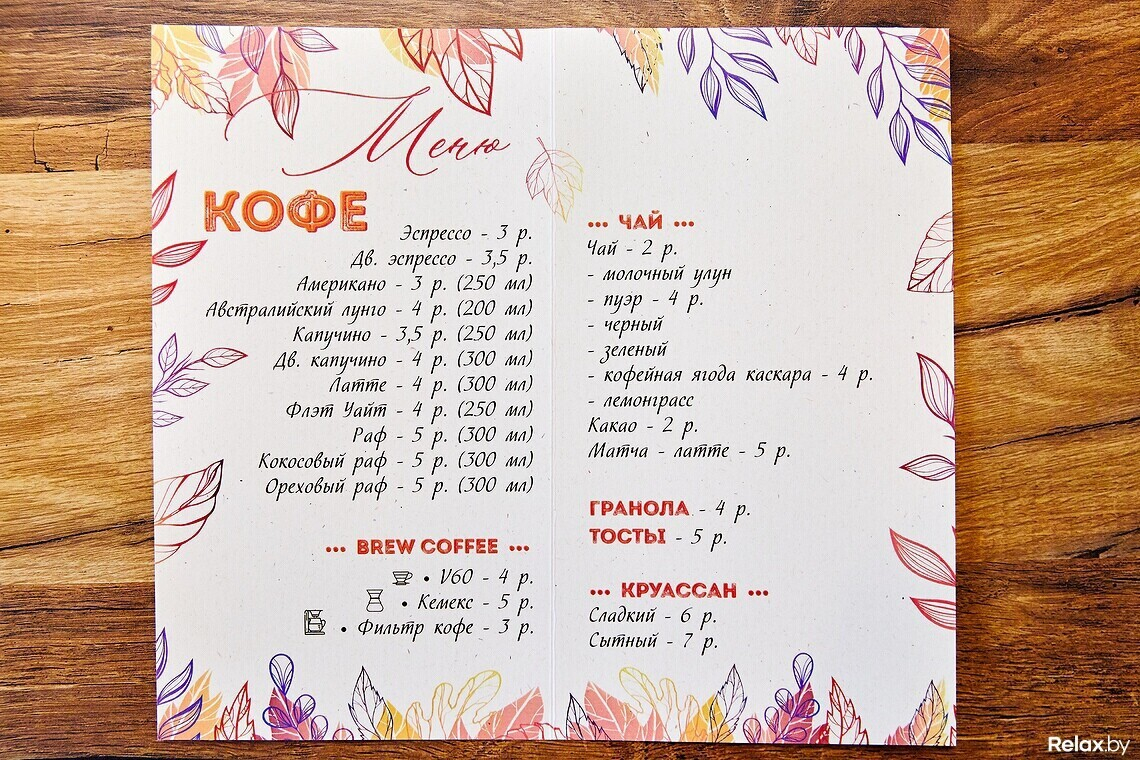 Меню
КОФЕ
Эспрессо - 3 р.
Дв. эспрессо - 3,5 р.
Американо - 3 р. (250 мл)
Австралийский лунго - 4 р. (200 мл)
Капучино - 3,5 р. (250 мл)
Дв. капучино - 4 р. (300 мл)
Латте - 4 р. (300 мл)
Флэт Уайт - 4 р. (250 мл)
Раф - 5 р. (300 мл)
Кокосовый раф - 5 р. (300 мл)
Ореховый раф - 5 р. (300 мл)
••• BREW COFFEE •••
• V60 - 4 р.
• Кемекс - 5 р.
• Фильтр кофе - 3 р.
••• ЧАЙ •••
Чай - 2 р.
- молочный улун
- пуэр - 4 р.
- черный
- зеленый
- кофейная ягода каскара - 4 р.
- лемонграсс
Какао - 2 р.
Матча - латте - 5 р.
ГРАНОЛА - 4 р.
ТОСТЫ - 5 р.
••• КРУАССАН •••
Сладкий - 6 р.
Сытный - 7 р.
Relax.by